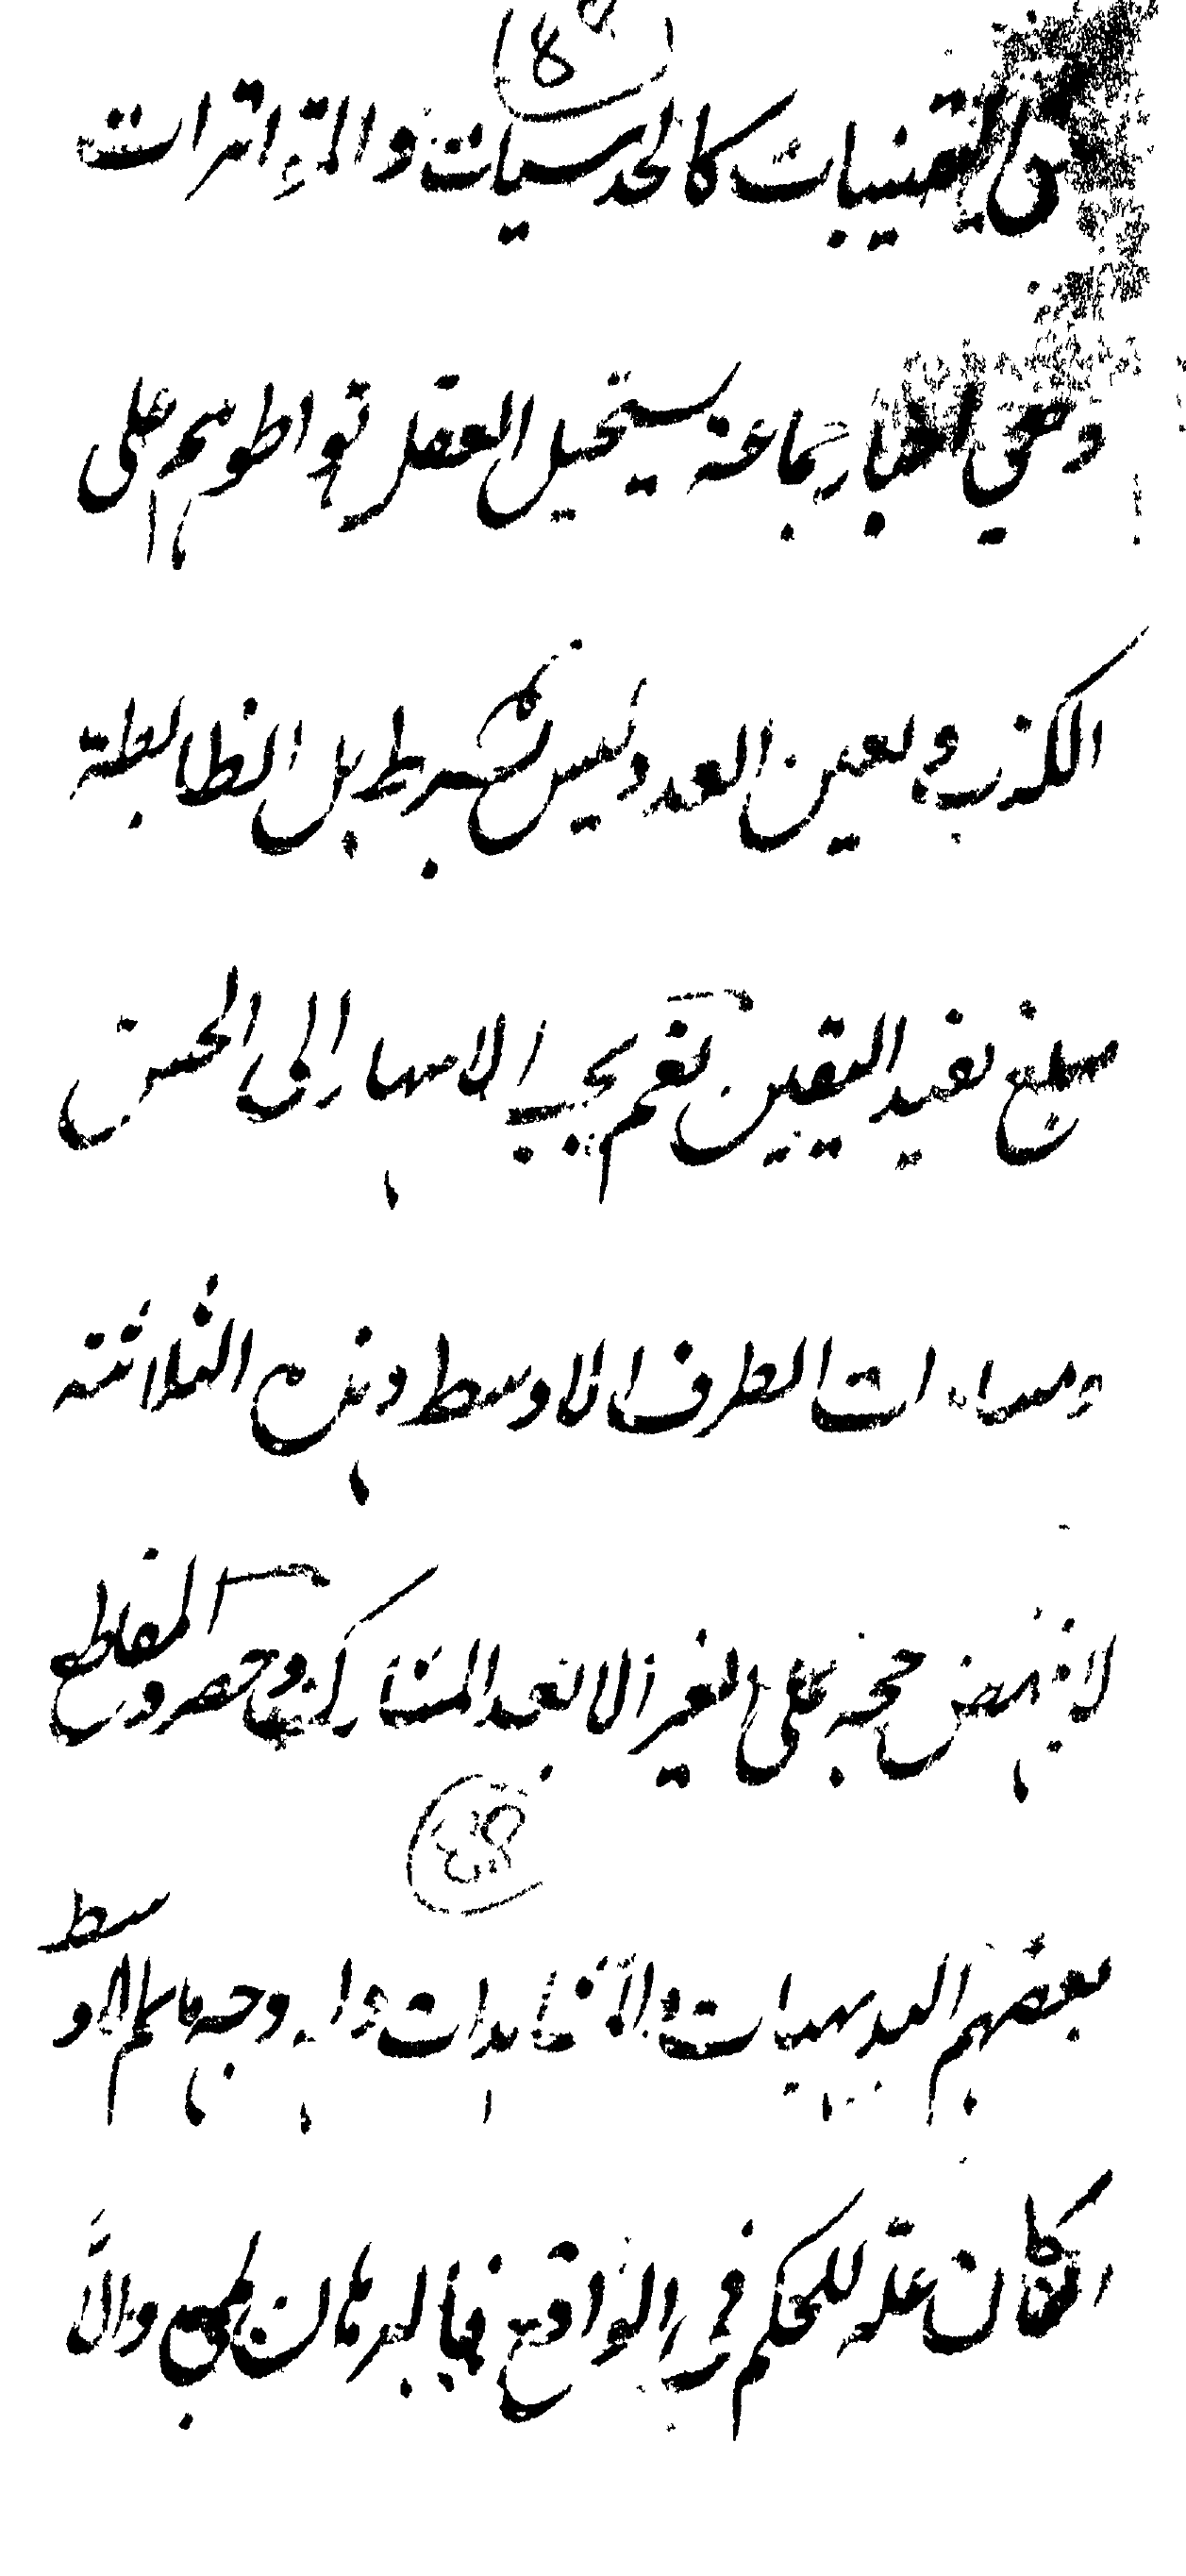 من اليقينيات كالحدسيات والمتواترات
وهي اخبار جماعة يستحيل العقل تواطوهم على
الكذب وتعين العدد ليس بشرط بل الضابطة
مبلغ يفيد اليقين نعم يجب الانتهاء الى الحس
ومساوات الطرف الاوسط وهذه الثلاثة
لا ينهض حجة على الغير الا بعد المشاركة وحصر
المقاطع
بعضهم البديهيات والمشاهدات وله وجه ما ثم الاوسط
ان كان علة للحكم في الواقع فالبرهان لمي والا